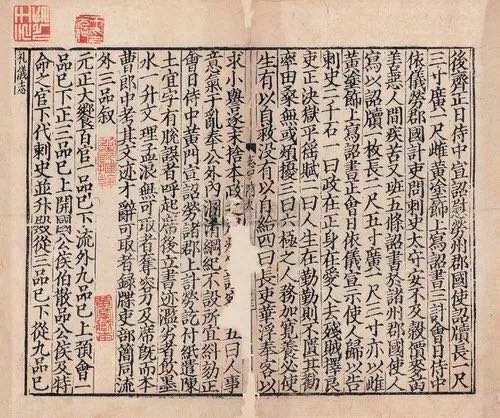 後齊正日侍中宣詔慰勞州郡國使詔牘長一尺
三寸廣一尺雌黃塗飾上寫詔書三計會日侍中
依儀勞郡國計吏問刺史太守安不及穀價麥苗
善惡人間疾苦又班五條詔書於諸州郡國使人
寫以詔牘一枚長二尺五寸廣一尺三寸亦以雌
黃塗飾上寫詔書正會日依儀宣示使人歸以告
刺史二千石一曰政在正身在愛人去殘賊擇良
吏正決獄平徭賦二曰人生在勤勤則不匱其勸
率田桑無或煩擾三曰六極之人務加寬養必使
生有以自救没有以自給四曰長吏華浮奉客以
求小譽逐末捨本政五曰人事
意氣干亂奉公外內溷淆綱紀不設所宜糾劾正
會日侍中黃門宣詔勞諸郡上計勞訖付紙遣陳
土宜字有脫誤者呼起席後立書迹濫劣者飲墨
水一升文理孟浪無可取者奪容刀及席既而本
曹郎中考其文迹才辭可取者録牒吏部簡同流
外三品叙
元正大饗百官一品已下流外九品已上預會一
品已下正三品已上開國公侯伯散品公侯及特
命之官下代刺史並升殿從三品已下從九品已
礼儀志